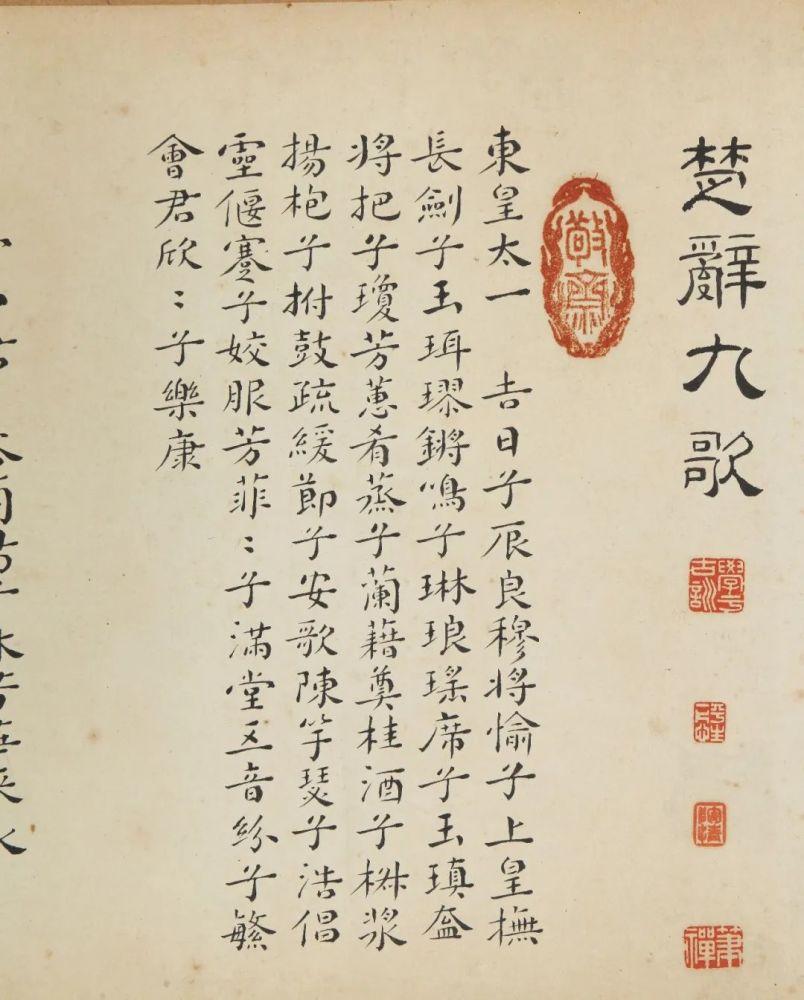 楚辭九歌
學于古訓
敬齋
東皇太一 吉日兮辰良穆將愉兮上皇撫
長劍兮玉珥璆鏘鳴兮琳琅瑤席兮玉瑱盍
將把兮瓊芳蕙肴蒸兮蘭藉奠桂酒兮椒漿
揚枹兮拊鼓疏緩節兮安歌陳竽瑟兮浩倡
靈偃蹇兮姣服芳菲〻兮滿堂五音紛兮繁
會君欣〻兮樂康